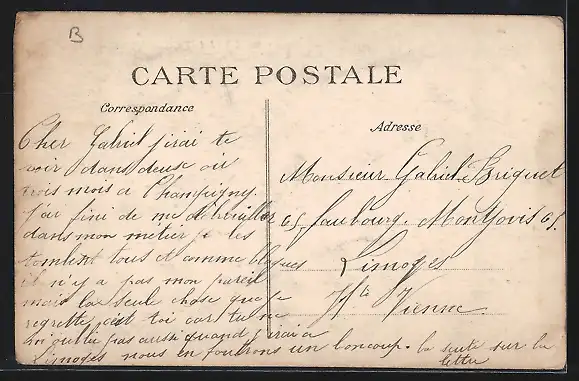 B
CARTE POSTALE
Correspondance
Cher Gabriel j'irai te
voir dans deuse ou
trois mois a Champigny.
J'ai fini de me débrouiller
dans mon métier je les
tombent tous et comme blagues
il n'y a pas mon pareil
mais la seule chose que je
regrette c'est toi car tu ne
pas aussi quand j'irai a
Limoges nous en foutrons un boncoup. la suite sur la
lettre
Adresse
Monsieur Gabriel Briquet
65 faubourg. Montjovis 65.
Limoges
Hte Vienne.